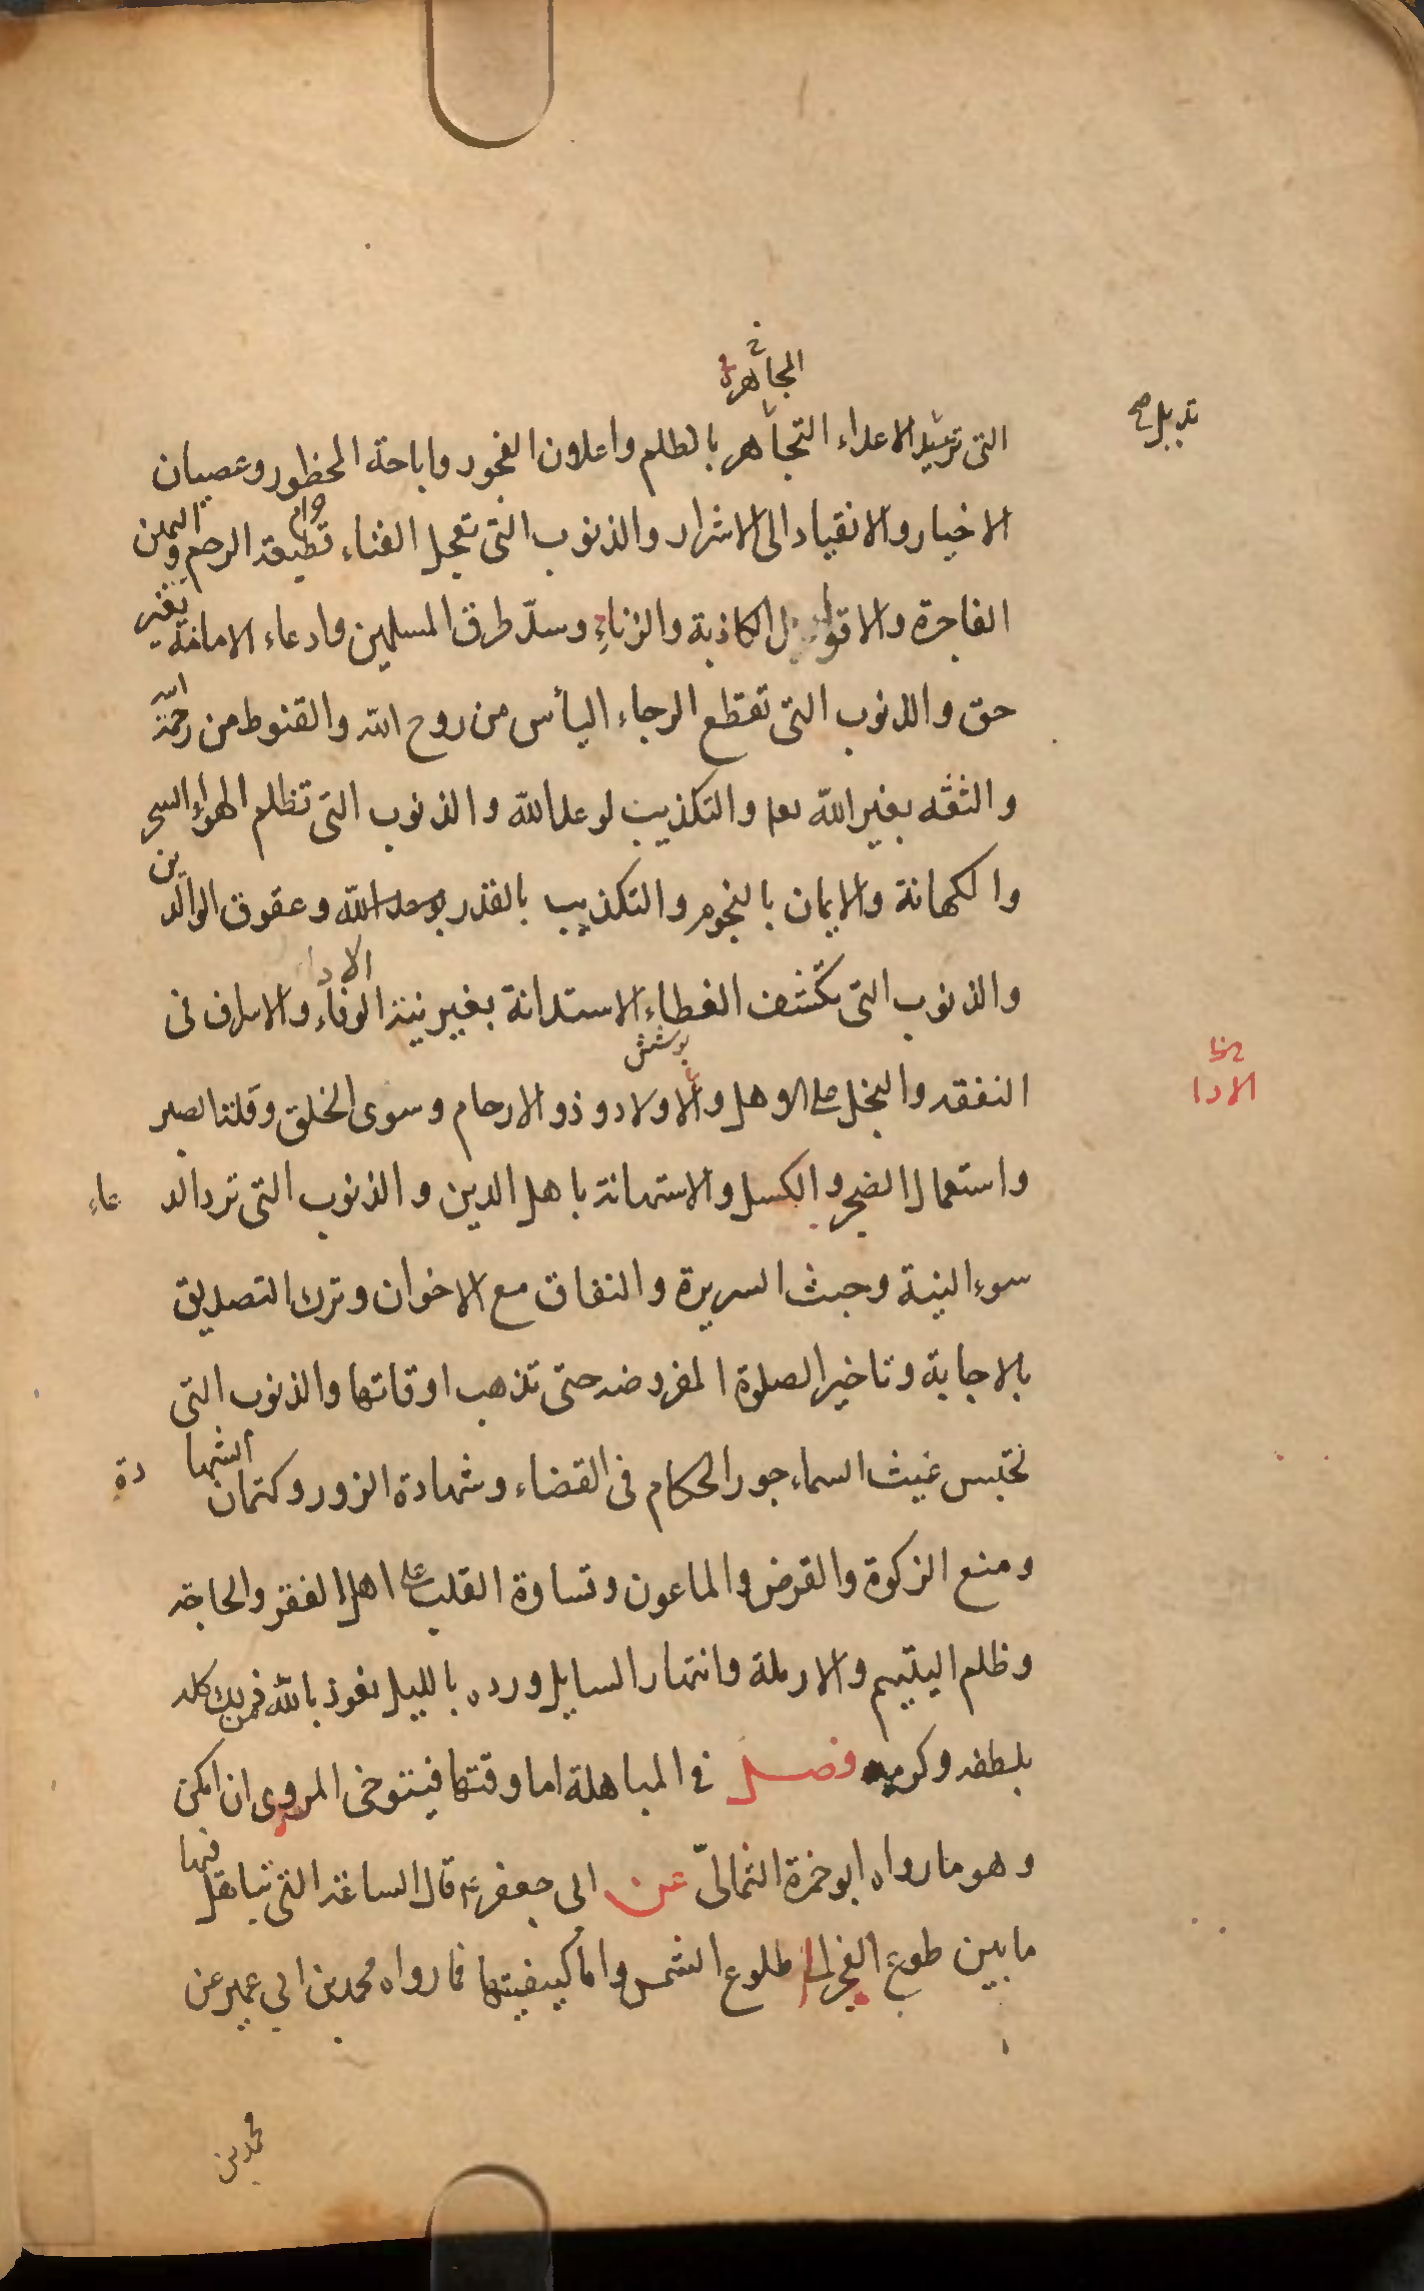 المجاهرة خ
تديل صح
التى تديل الاعداء التجاهر بالظلم واعلان الفجور واباحة المحظور وعصيان
الاخيار والانقياد الى الاشرار والذنوب التى تعجل الفناء قطيعة الرحم واليمين
الفاجرة والاقاويل الكاذبة والزناء وسدّ طرق المسلمين وادعاء الامامة بغير
حق والذنوب التى تقطع الرجاء اليأس من روح الله والقنوط من رحمة الله
والثقه بغير الله والتكذيب لوعد الله والذنوب التى تظلم الهواء السحر
والكهانة والايمان بالنجوم والتكذيب بالقدر وعقوق الوالدين
الادا
والذنوب التى تكشف الغطاء الاستدانة بغير نية الوفاء والاسراف فى
خ ل
الادا
النفقه والبخل على الاهل والاولاد وذو الارحام وسوى الخلق وقلة الصبر
واستعمال الضجر والكسل والاستهانة باهل الدين والذنوب التى ترد الدعاء
سوء النية وخبث السريرة والنفاق مع الاخوان وترك التصديق
بالاجابة وتاخير الصلوة المفروضه حتى تذهب اوقاتها والذنوب التى
تحتبس غيث السماء جور الحكام فى القضاء وشهادة الزور وكتمان الشهادة
ومنع الزكوة والقرض والماعون وقساوة القلب على اهل الفقر والحاجة
وظلم اليتيم والارملة وانتهار السايل ورده بالليل نعوذ بالله من ذلك كله
بلطفه وكرمه فصل فى المباهلة اما وقتها فيتوخى المروى ان امكن
وهو ما رواه ابو حمزة الثمالىّ عن ابى جعفر ع قال الساعة التى تباهل فيها
ما بين طلوع الفجر الى طلوع الشمس واما كيفيتها فما رواه محمد بن ابى عمير عن
محمد بن